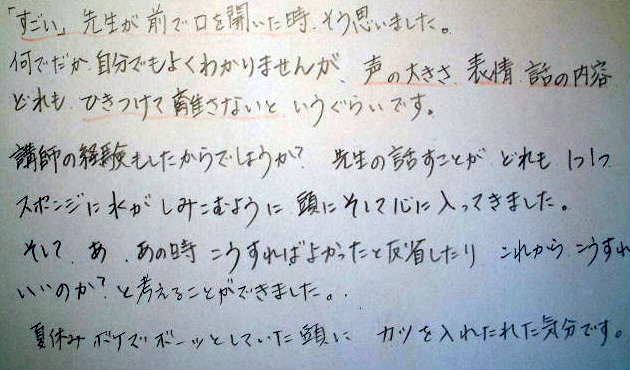 「すごい」先生が前で口を開いた時、そう思いました。
何でだか自分でもよくわかりませんが、声の大きさ、表情、話の内容
どれも、ひきつけて離さないと、いうぐらいです。
講師の経験もしたからでしょうか? 先生の話すことが、どれも1つ1つ
スポンジに水がしみこむように頭にそして心に入ってきました。
そして、あ、あの時こうすればよかったと反省したり、これから、こうすれ
いいのか?と考えることができました。
夏休みボケでボーッとしていた頭に カツを入れたれた気分です。